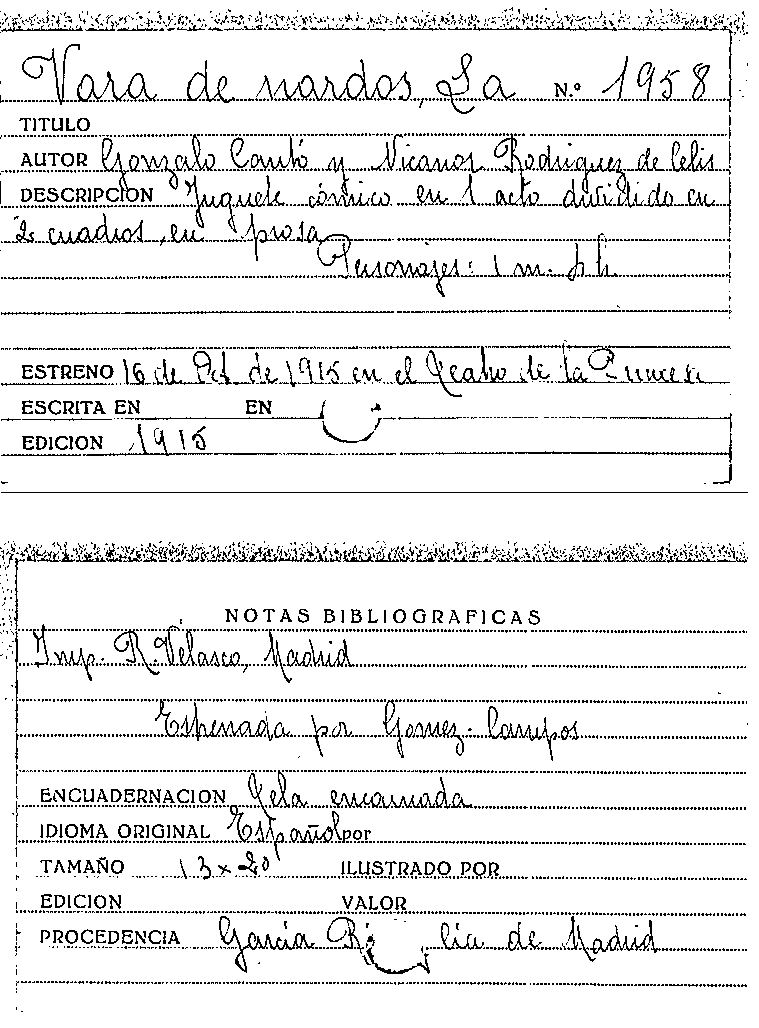 Vara de nardos, La N.º 1958
TITULO
AUTOR Gonzalo Cantó y Nicanor Rodriguez de Celis
DESCRIPCION Juguete cómico en 1 acto dividido en
2 cuadros, en prosa
Personajes: 1 m. h.
ESTRENO 16 de Oct de 1915 en el Teatro de la Princesa
ESCRITA EN EN
EDICION 1915
NOTAS BIBLIOGRAFICAS
Imp. R. Velasco, Madrid
Estrenada por Gomez-Campos
ENCUADERNACION Tela encarnada
IDIOMA ORIGINAL Español por
TAMAÑO 13 x 20 ILUSTRADO POR
EDICION VALOR
PROCEDENCIA García de Madrid